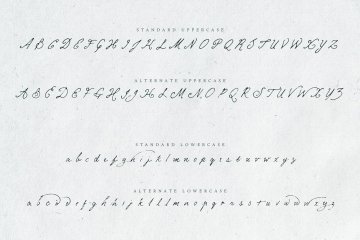 STANDARD UPPERCASE
A B C D E F G H I J K L M N O P Q R S T U V W X Y Z
ALTERNATE UPPERCASE
A B C D E F G H I J K L M N O P Q R S T U V W X Y Z
STANDARD LOWERCASE
a b c d e f g h i j k l m n o p q r s t u v w x y z
ALTERNATE LOWERCASE